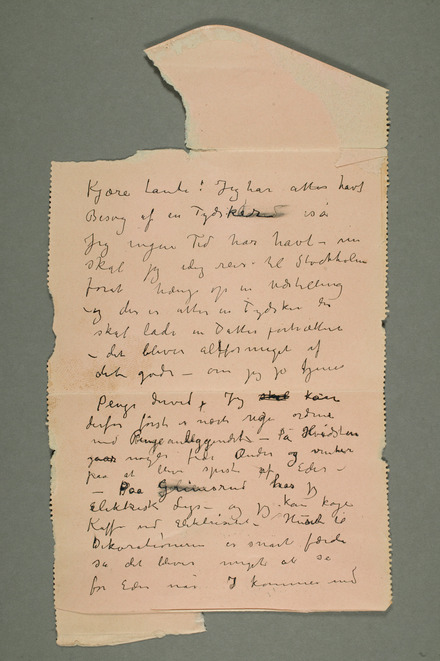 Kjære Tante! Jeg har atter havt
Besøg af en Tydsker så
Jeg ingen Tid har havt – nu
skal jeg idag reise til Stockholm
forat hænge op en Udstilling
– og der er atter en Tydsker der
skal lade en Datter portrættere
– det bliver altfor meget af
det gode – om jeg jo tjener
Penge derved, Jeg skal kan
derfor først i næste Uge ordne
med Pengeanliggendet – På Hvidsten
gaar meget fede Ænder og venter
paa at blive spist af Eder –
– Paa Grimsrud har jeg
Elektrisk Lys – og jeg kan koge
Kaffe med Elektricitet –
Dekorationerne er snart færdig
så det bliver meget at se
for Eder når I kommer ned